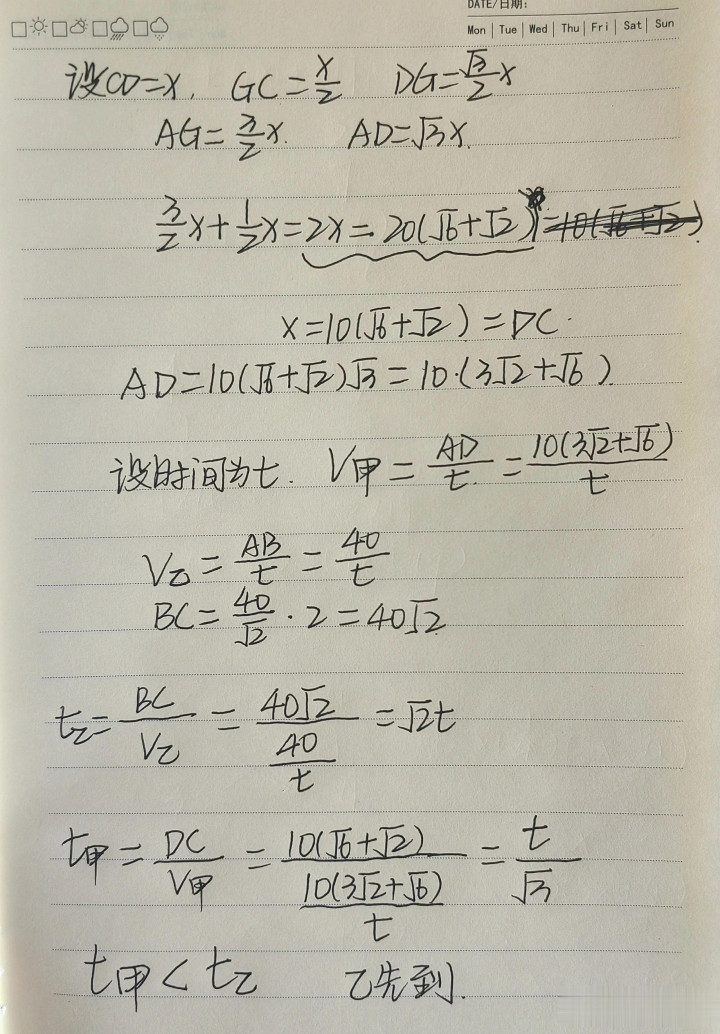 DATE/日期:
Mon | Tue | Wed | Thu | Fri | Sat | Sun
设CD=x, GC=x/2 DG=√3/2 x
AG=3/2 x. AD=√3x.
3/2 x+1/2 x=2x=20(√6+√2)=10(√6+√2)
x=10(√6+√2)=DC.
AD=10(√6+√2)√3=10·(3√2+√6).
设时间为t. V甲=AD/t=10(3√2+√6)/t
V乙=AB/t=40/t
BC=40/√2·2=40√2
t乙=BC/V乙=40√2/(40/t)=√2t
t甲=DC/V甲=10(√6+√2)/(10(3√2+√6)/t)=t/√3
t甲<t乙 乙先到.